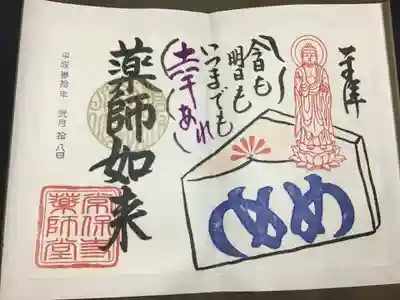 奉拝
今日も
明日も
いつまでも
幸あれ
めめ
薬師如来
平成参拾年 弐月 拾八日
常保寺
薬師堂